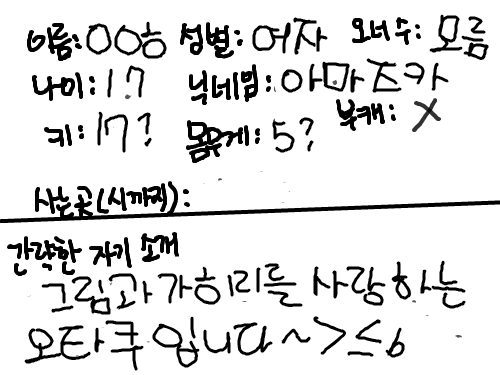 이름: OO흠 성별: 여자 오너 수: 모름
나이: 1? 닉네임: 아마즈카
키: 17? 몸무게: 5? 부캐: X
사는곳(시까지):
간략한 자기 소개
그림과 가히리를 사랑하는
오타쿠입니다~>≤6